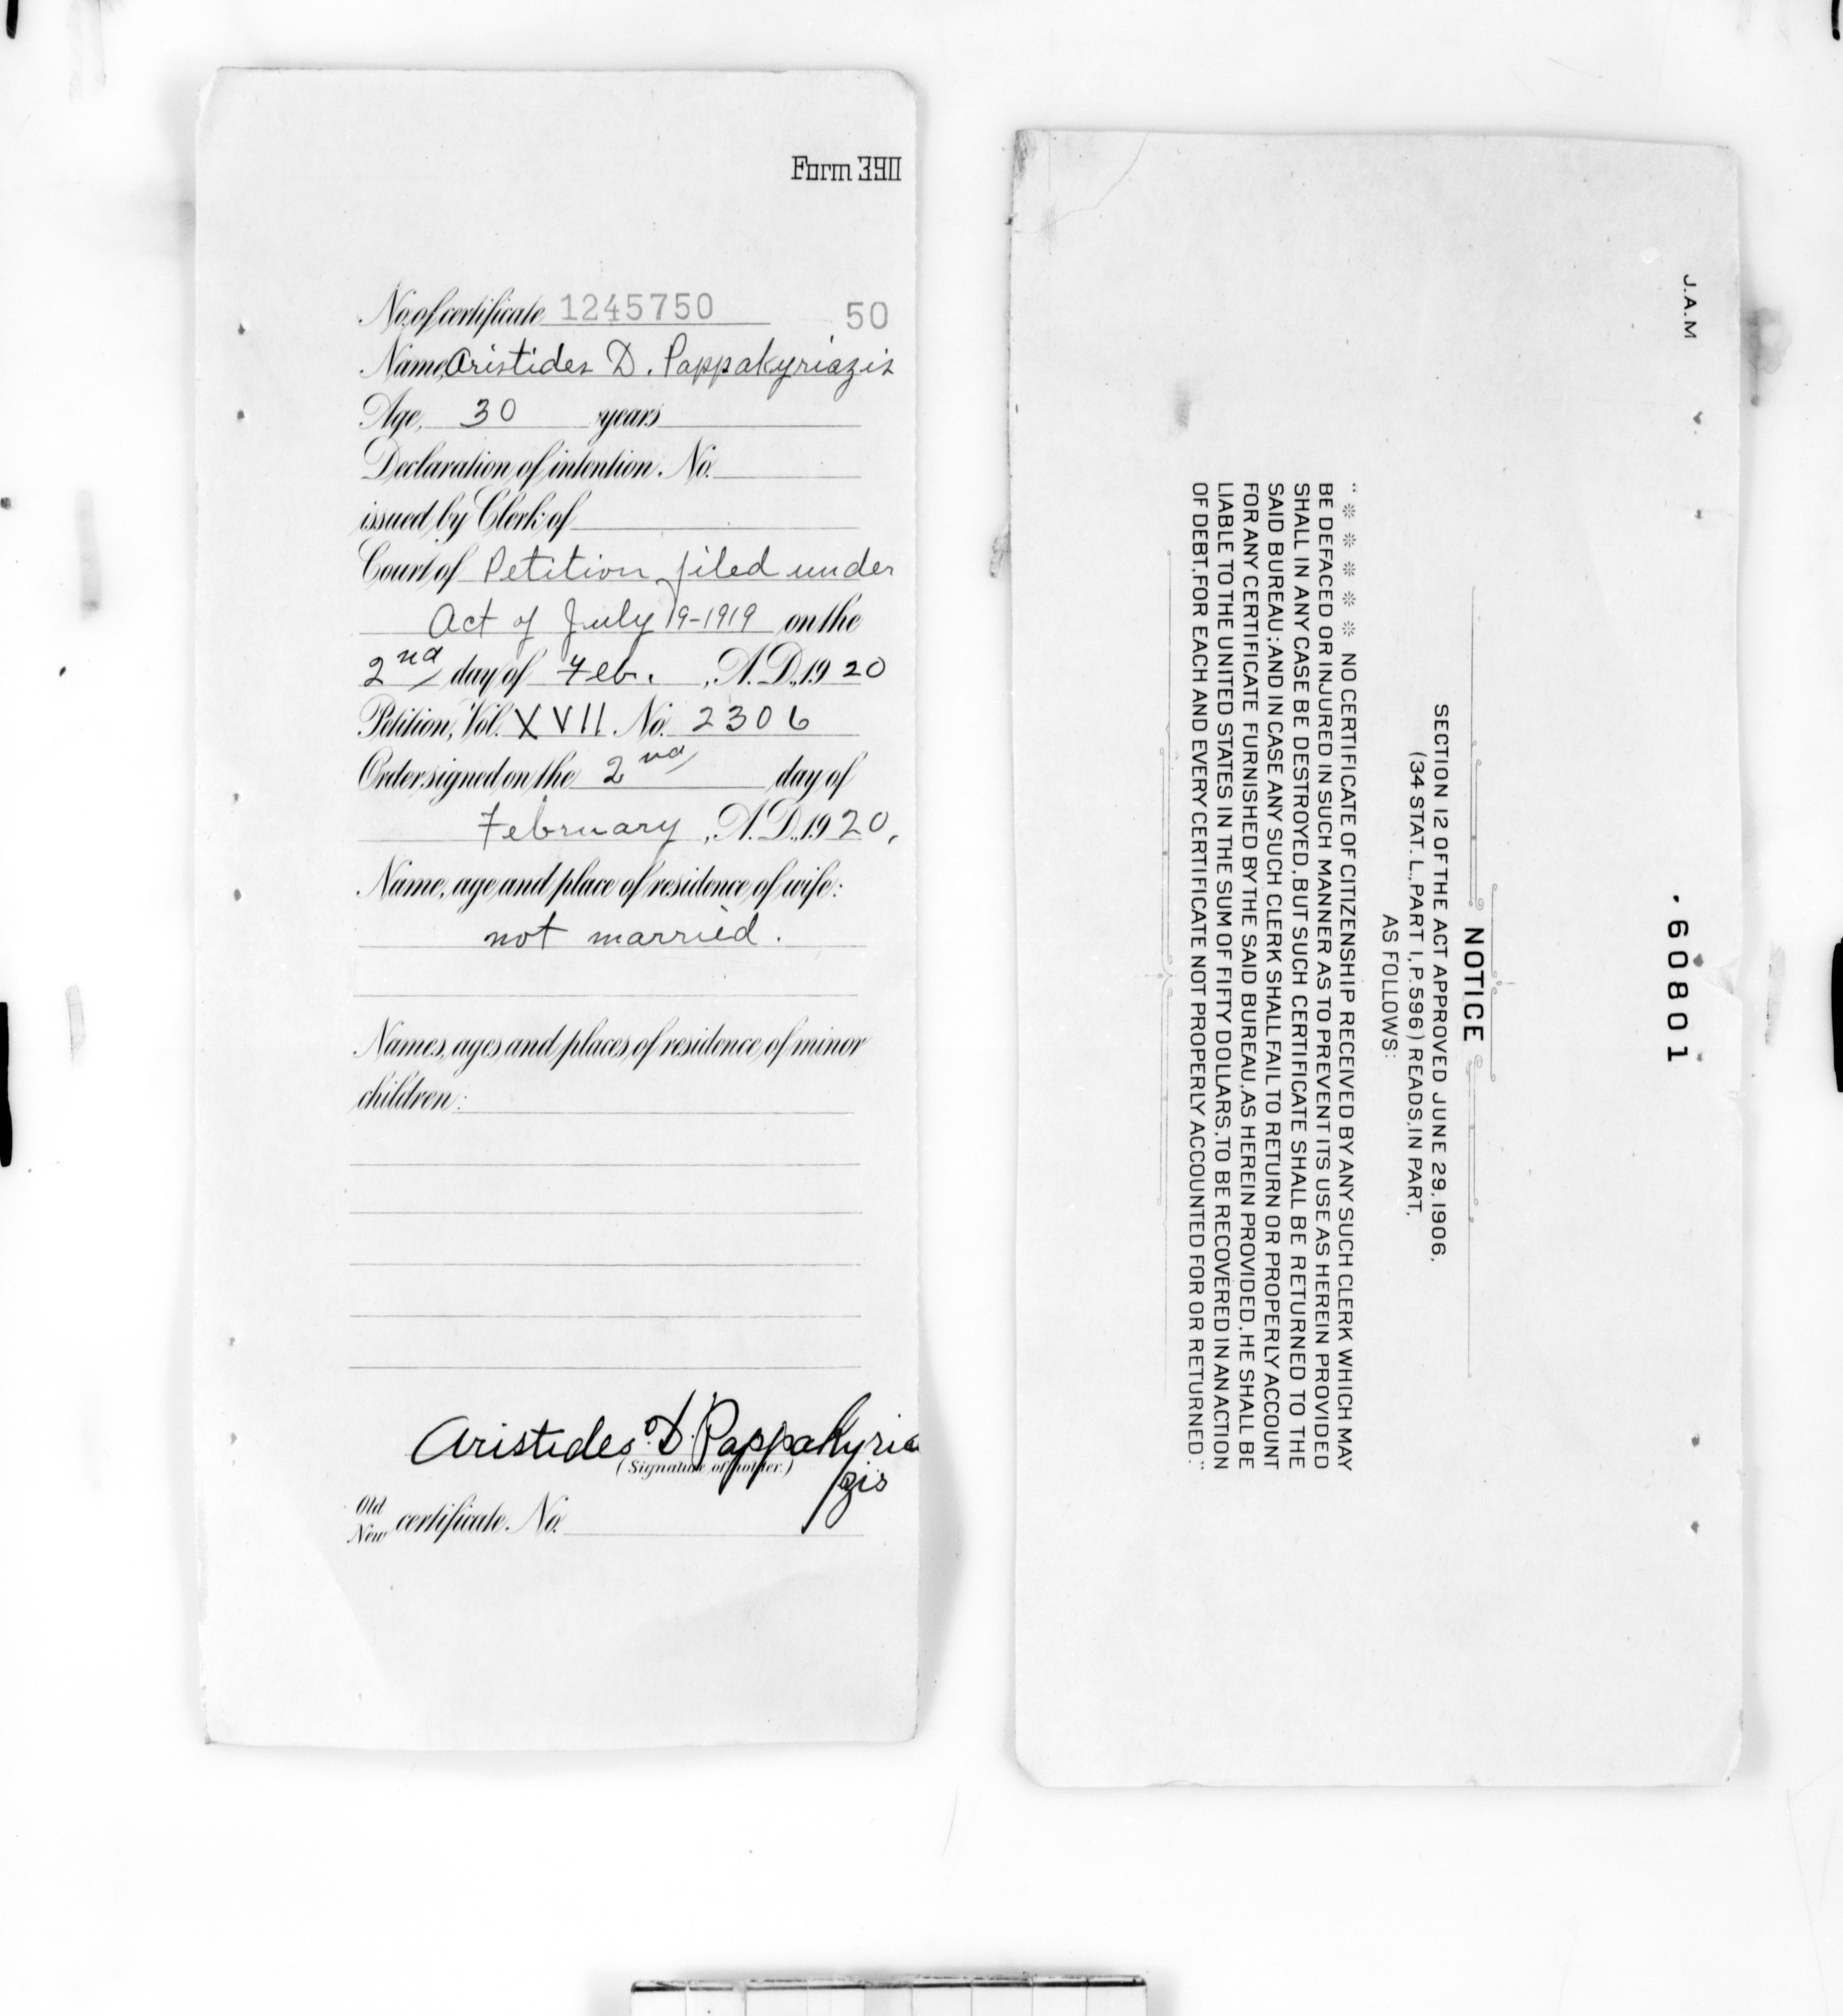 Form 390
No. of certificate 1245750 50
Name, Aristides D. Pappakyriazis
Age, 30 years
Declaration of intention. No.
issued by Clerk of
Court of Petition filed under
Act of July 19-1919 on the
2nd day of Feb. , A.D., 1920
Petition, Vol. XVII. No. 2306
Order signed on the 2nd day of
February , A.D., 1920.
Name, age and place of residence of wife:
not married.
Names, ages and places of residence of minor
children:
Aristides D. Pappakyria
zis
(Signature of holder.)
Old
New certificate. No.
J.A.M
60801
NOTICE
SECTION 12 OF THE ACT APPROVED JUNE 29, 1906,
(34 STAT. L., PART 1, P. 596) READS, IN PART,
AS FOLLOWS:
" * * * * * NO CERTIFICATE OF CITIZENSHIP RECEIVED BY ANY SUCH CLERK WHICH MAY
BE DEFACED OR INJURED IN SUCH MANNER AS TO PREVENT ITS USE AS HEREIN PROVIDED
SHALL IN ANY CASE BE DESTROYED, BUT SUCH CERTIFICATE SHALL BE RETURNED TO THE
SAID BUREAU; AND IN CASE ANY SUCH CLERK SHALL FAIL TO RETURN OR PROPERLY ACCOUNT
FOR ANY CERTIFICATE FURNISHED BY THE SAID BUREAU, AS HEREIN PROVIDED, HE SHALL BE
LIABLE TO THE UNITED STATES IN THE SUM OF FIFTY DOLLARS, TO BE RECOVERED IN AN ACTION
OF DEBT, FOR EACH AND EVERY CERTIFICATE NOT PROPERLY ACCOUNTED FOR OR RETURNED."